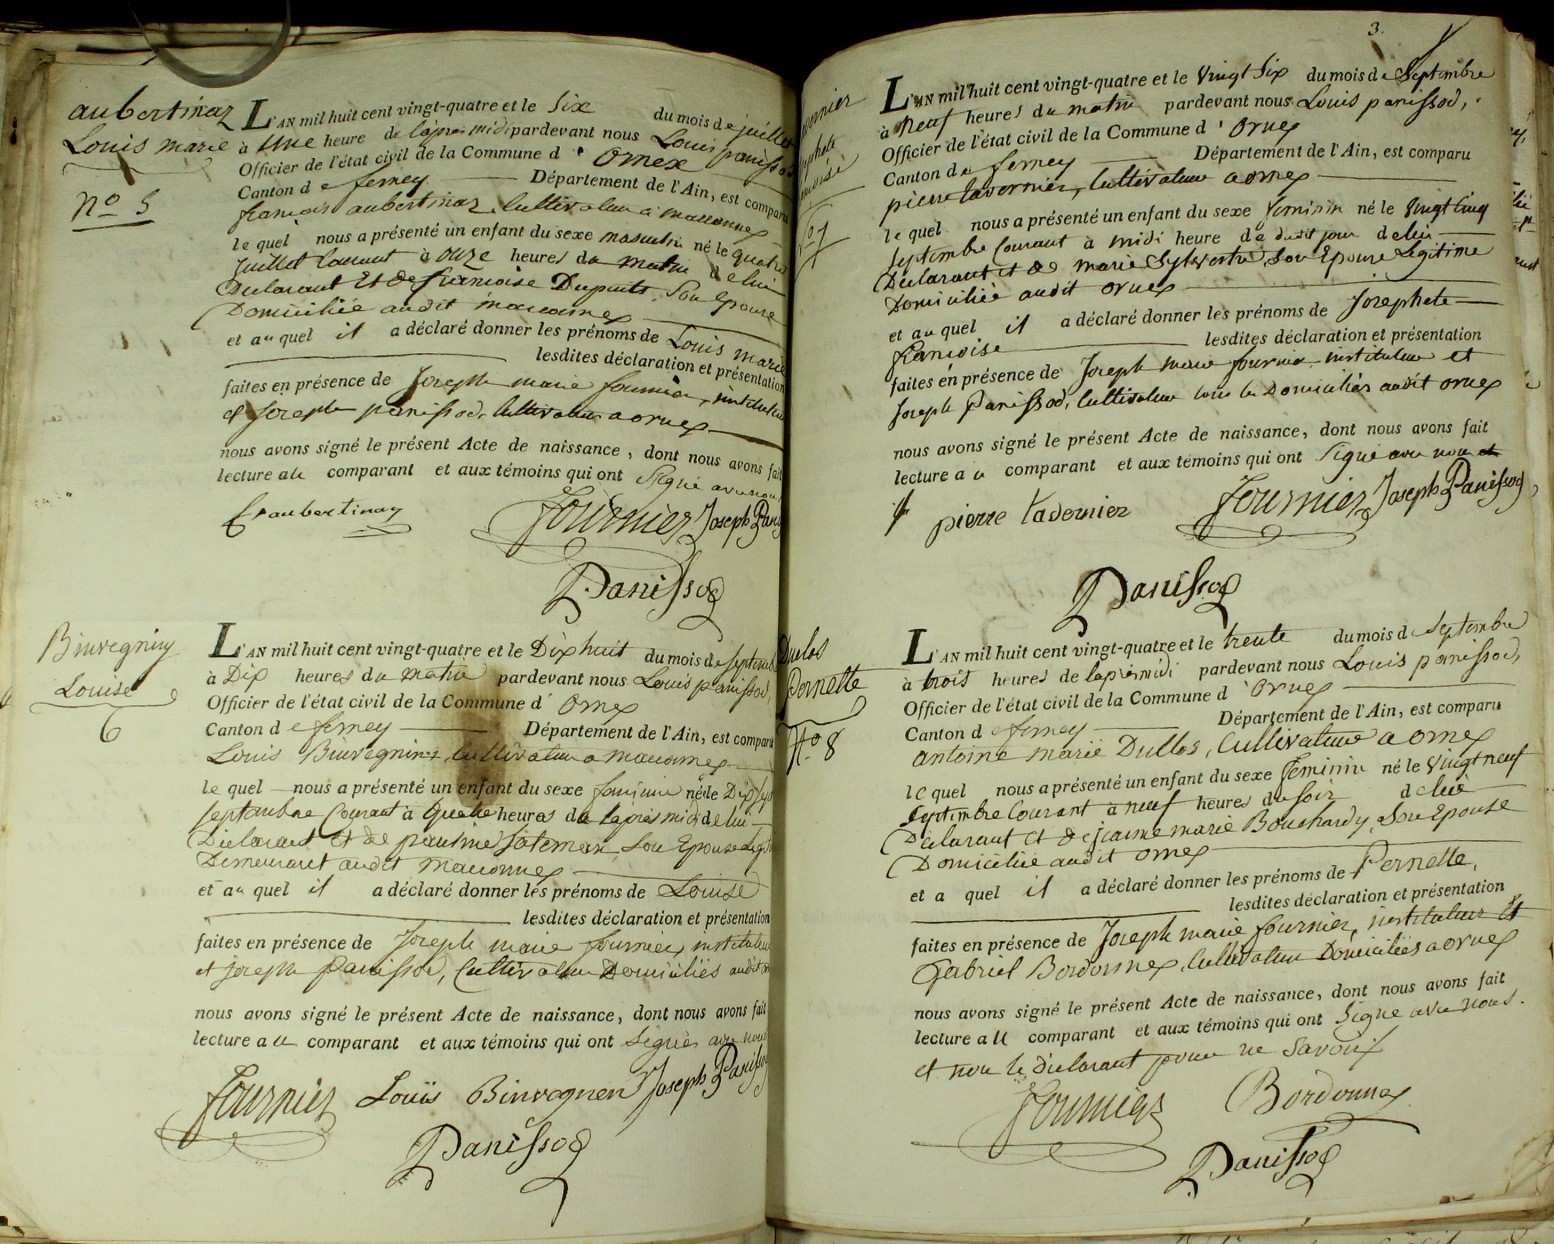 aubertinaz
Louis marie
nº 5
L'AN mil huit cent vingt-quatre et le Six du mois de juillet
à une heure de laprès midi pardevant nous Louis panissod
Officier de l'état civil de la Commune d' Ornex
Canton de ferney Département de l'Ain, est comparu
françois aubertinaz, Cultivateur à maconnex
le quel nous a présenté un enfant du sexe masculin né le quatre
juillet Courant à onze heures du matin de lui
Déclarant Et de françoise Dupuits, Son Epouse
Domiciliée audit maconnex
et au quel il a déclaré donner les prénoms de Louis marie
lesdites déclaration et présentation
faites en présence de Joseph marie fournier, instituteur
et Joseph panissod, Cultivateur a ornex
nous avons signé le présent Acte de naissance, dont nous avons fait
lecture au comparant et aux témoins qui ont Signé avec nous
fs aubertinaz Fournier Joseph Panis
Panissod
Binvegnin
Louise
6
L'AN mil huit cent vingt-quatre et le Dix huit du mois de septemb
à Dix heures du matin pardevant nous Louis panissod,
Officier de l'état civil de la Commune d' Ornex
Canton de ferney Département de l'Ain, est comparu
Louis Binvegnin, Cultivateur a maconnex
le quel nous a présenté un enfant du sexe feminin né le Dix Sept
septembre Courant à Quatre heures de laprès midi de lui
Déclarant Et de pauline Sateman, Son Epouse Legit
Demeurant audit maconnex
et au quel il a déclaré donner les prénoms de Louise
lesdites déclaration et présentation
faites en présence de Joseph marie fournier, instituteur
et Joseph panissod, Cultivateur Domiciliés audit or
nous avons signé le présent Acte de naissance, dont nous avons fait
lecture au comparant et aux témoins qui ont Signés avec nous
Fournier Louis Binvegnen Joseph Panisso
Panissod
3.
avernier
sephete
ançoise
Nº 7
L'AN mil huit cent vingt-quatre et le Vingt Six du mois de Septembre
à Neuf heures du matin pardevant nous Louis panissod,
Officier de l'état civil de la Commune d' Ornex
Canton de ferney Département de l'Ain, est comparu
pierre tavernier, Cultivateur a ornex
le quel nous a présenté un enfant du sexe feminin né le Vingt Cinq
septembre Courant à midi heure de dudit jour de lui
Déclarant Et de marie Sylvestre, Son Epouse Legitime
Domiciliée audit ornex
et au quel il a déclaré donner les prénoms de Josephete
françoise lesdites déclaration et présentation
faites en présence de Joseph marie fournier instituteur et
Joseph Panissod, Cultivateur tous les Domiciliés audit ornex
nous avons signé le présent Acte de naissance, dont nous avons fait
lecture au comparant et aux témoins qui ont Signé avec nous et
pierre tavernier Fournier Joseph Panissod
Panissod
Duclos
Pernette
Nº 8
L'AN mil huit cent vingt-quatre et le trente du mois de Septembre
à trois heures de laprèsmidi pardevant nous Louis panissod,
Officier de l'état civil de la Commune d' Ornex
Canton de ferney Département de l'Ain, est comparu
antoine marie Duclos, Cultivateur a ornex
le quel nous a présenté un enfant du sexe feminin né le Vingt neuf
Septembre Courant à neuf heures du soir de lui
Déclarant Et de jeanne marie Bouchardy, Son Epouse
Domiciliée audit ornex
et a quel il a déclaré donner les prénoms de Pernette,
lesdites déclaration et présentation
faites en présence de Joseph marie fournier, instituteur Et
Gabriel Bordonnex, Cultivateur Domiciliés a ornex
nous avons signé le présent Acte de naissance, dont nous avons fait
lecture au comparant et aux témoins qui ont Signé avec nous.
et non le déclarant pour ne Savoir
Fournier Bordonnex
Panissod